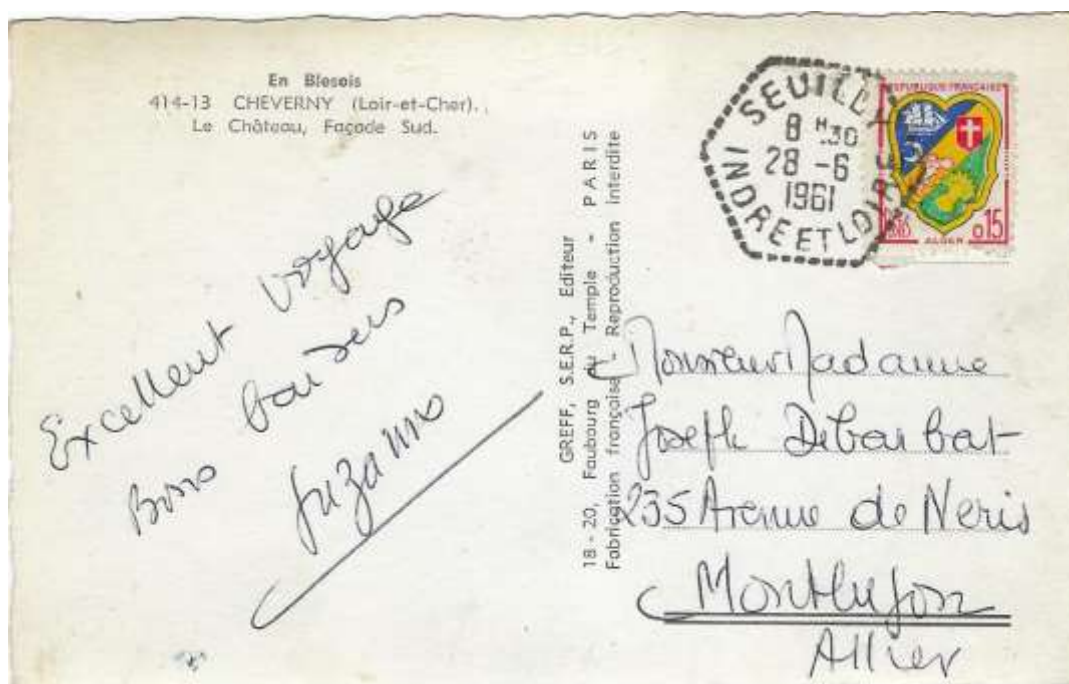 En Blesois
414-13 CHEVERNY (Loir-et-Cher).
Le Château, Façade Sud.
Excellent voyage
Bons baisers
Suzanne
GREFF, S.E.R.P., Editeur
18 - 20, Faubourg du Temple - PARIS
Fabrication française - Reproduction interdite
SEUILLY
8 H 30
28 -6
1961
INDRE ET LOIRE
REPUBLIQUE FRANÇAISE
POSTES
0,15
ALGER
Monsieur Madame
Joseph Debarbat
235 Avenue de Neris
Montluçon
Allier